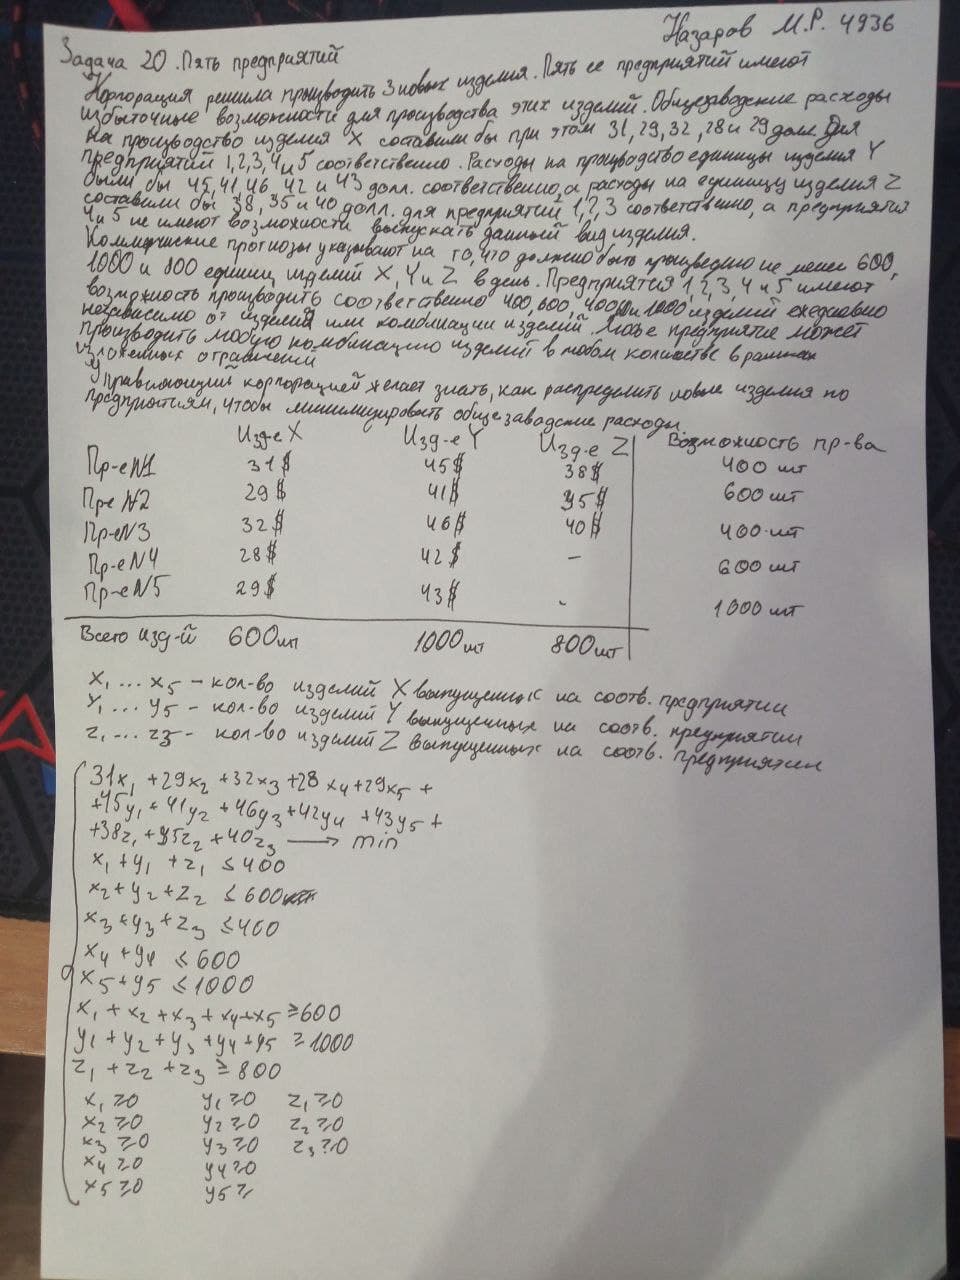 Назаров М.Р. 4936
Задача 20. Пять предприятий
Корпорация решила производить 3 новых изделия. Пять ее предприятий имеют
избыточные возможности для производства этих изделий. Общезаводские расходы
на производство изделия X составили бы при этом 31, 29, 32, 28 и 29 долл. Для
предприятий 1, 2, 3, 4 и 5 соответственно. Расходы на производство единицы изделия Y
были бы 45, 41, 46, 42 и 43 долл. соответственно, а расходы на единицу изделия Z
составили бы 38, 35 и 40 долл. для предприятий 1, 2, 3 соответственно, а предприятия
4 и 5 не имеют возможности выпускать данный вид изделия.
Коммерческие прогнозы указывают на то, что должно быть произведено не менее 600,
1000 и 800 единиц изделий X, Y и Z в день. Предприятия 1, 2, 3, 4 и 5 имеют
возможность производить соответственно 400, 600, 400 и 1000 изделий ежедневно
независимо от изделий или комбинации изделий. Любое предприятие может
производить любую комбинацию изделий в любом количестве в рамках
изложенных ограничений
Управляющий корпорацией желает знать, как распределить новые изделия по
предприятиям, чтобы минимизировать общезаводские расходы.
Изд-е X Изд-е Y Изд-е Z Возможность пр-ва
Пр-е №1 31$ 45$ 38$ 400 шт
Пр-е №2 29$ 41$ 35$ 600 шт
Пр-е №3 32$ 46$ 40$ 400 шт
Пр-е №4 28$ 42$ - 600 шт
Пр-е №5 29$ 43$ - 1000 шт
Всего изд-й 600 шт 1000 шт 800 шт
x₁ ... x₅ – кол-во изделий X выпущенных на соотв. предприятии
y₁ ... y₅ – кол-во изделий Y выпущенных на соотв. предприятии
z₁ ... z₃ – кол-во изделий Z выпущенных на соотв. предприятии
31x₁ + 29x₂ + 32x₃ + 28x₄ + 29x₅ +
+45y₁ + 41y₂ + 46y₃ + 42y₄ + 43y₅ +
+38z₁ + 35z₂ + 40z₃ → min
x₁ + y₁ + z₁ ≤ 400
x₂ + y₂ + z₂ ≤ 600
x₃ + y₃ + z₃ ≤ 400
x₄ + y₄ ≤ 600
x₅ + y₅ ≤ 1000
x₁ + x₂ + x₃ + x₄ + x₅ ≥ 600
y₁ + y₂ + y₃ + y₄ + y₅ ≥ 1000
z₁ + z₂ + z₃ ≥ 800
x₁ ≥ 0 y₁ ≥ 0 z₁ ≥ 0
x₂ ≥ 0 y₂ ≥ 0 z₂ ≥ 0
x₃ ≥ 0 y₃ ≥ 0 z₃ ≥ 0
x₄ ≥ 0 y₄ ≥ 0
x₅ ≥ 0 y₅ ≥